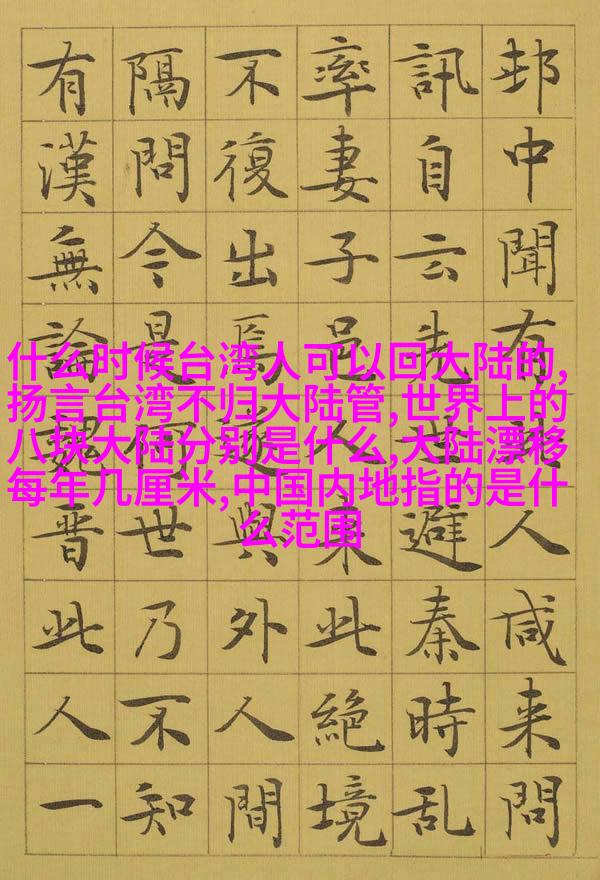 邨中聞有人咸来問
訊自云先世避秦時乱
率妻子邑人来此絶境
不復出焉遂與外人間
隔問今是何世乃不知
有漢無論魏晋此人一
什么时候台湾人可以回大陆的,
扬言台湾不归大陆管,世界上的
八块大陆分别是什么,大陆漂移
每年几厘米,中国内地指的是什
么范围